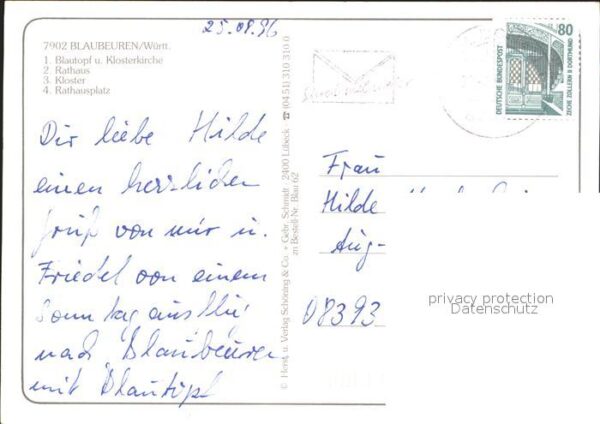 25.08.96
7902 BLAUBEUREN/Württ.
1. Blautopf u. Klosterkirche
2. Rathaus
3. Kloster
4. Rathausplatz
Dir liebe Hilde
einen herzlichen
Gruß von mir u.
Friedel von einem
Sonntagausflu
nach Blaubeuren
mit Blautopf
© Herst. u. Verlag Schöning & Co. + Gebr. Schmidt · 2400 Lübeck ☎ (04 51) 310 310 0
zn Bestell-Nr. Blau 62
DEUTSCHE BUNDESPOST
80
ZECHE ZOLLERN II DORTMUND
Frau
Hilde
Aug-
08393
privacy protection
Datenschutz